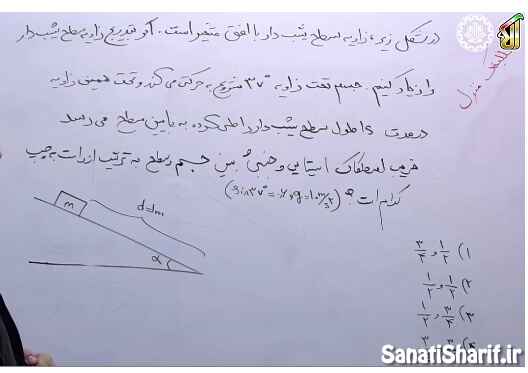 در شکل زیر، زاویه سطح شیب دار با افق متغیر است. اگر بتدریج زاویه سطح شیب دار
را زیاد کنیم. جسم تحت زاویه ۳۷° شروع به حرکت می کند و تحت همین زاویه
در مدت 1s طول سطح شیب دار را طی کرده به پایین سطح می رسد
ضریب اصطکاک ایستایی و جنبشی بین جسم و سطح به ترتیب از راست به چپ
کدام است؟ (sin۳۷°=۰/۶ و g=۱۰ m/s²)
تکلیف منزل
d=۱m
m
α
۱) ۱/۲ و ۳/۴
۲) ۱/۲ و ۱/۲
۳) ۳/۴ و ۱/۲
SanatiSharif.ir